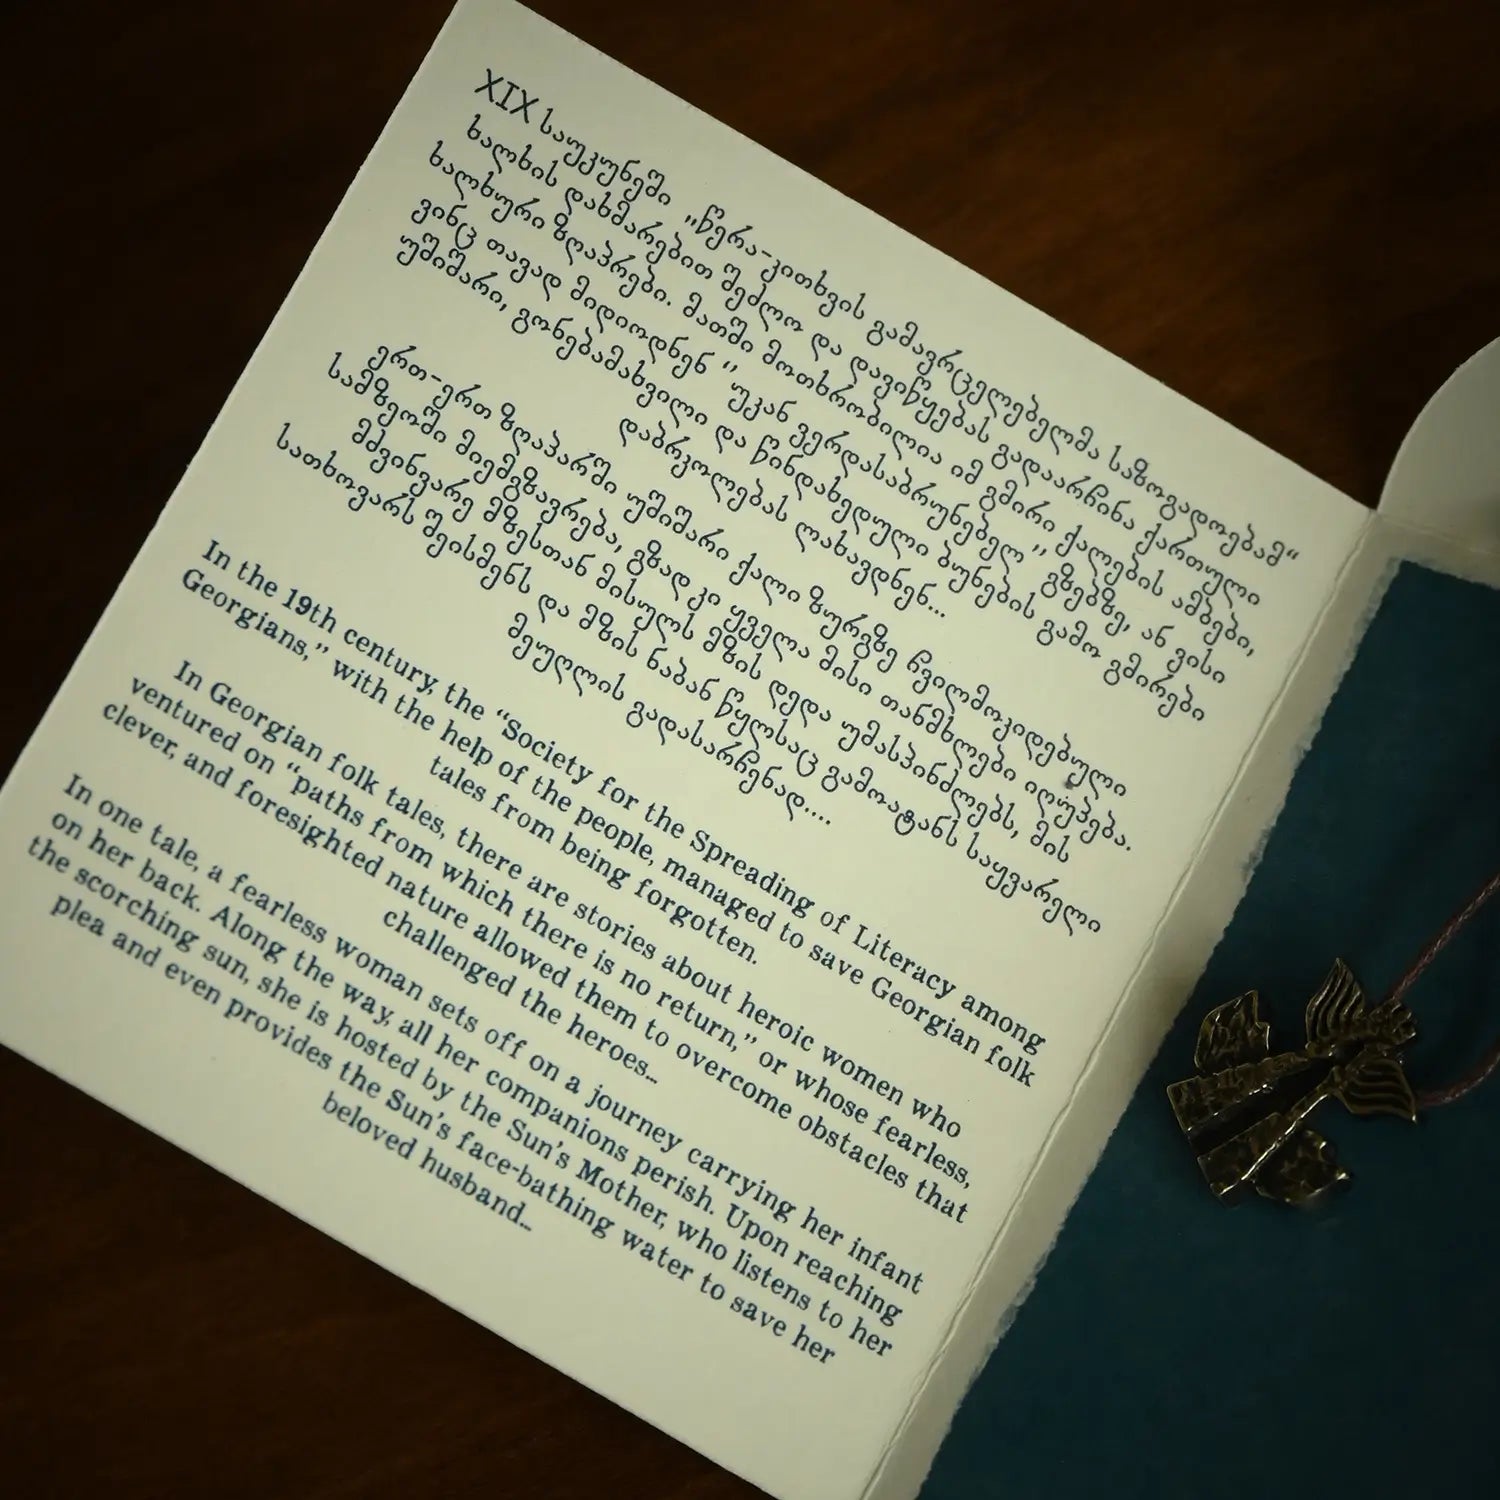 XIX საუკუნეში „წერა-კითხვის გამავრცელებელმა საზოგადოებამ“
ხალხის დახმარებით შეძლო და დავიწყებას გადაარჩინა ქართული
ხალხური ზღაპრები. მათში მოთხრობილია იმ გმირი ქალების ამბები,
ვინც თავად მიდიოდნენ "უკან ვერდასაბრუნებელ" გზებზე, ან ვისი
უშიშარი, გონებამახვილი და წინდახედული ბუნების გამო გმირები
დაბრკოლებას ლახავდნენ...
ერთ-ერთ ზღაპარში უშიშარი ქალი ზურგზე ჩვილმოკიდებული
სამზეოში მიემგზავრება, გზად კი ყველა მისი თანმხლები იღუპება.
მძვინვარე მზესთან მისულს მზის დედა უმასპინძლებს, მის
სათხოვარს შეისმენს და მზის ნაბან წყლსაც გამოატანს საყვარელი
მეუღლის გადასარჩენად....
In the 19th century, the “Society for the Spreading of Literacy among
Georgians,” with the help of the people, managed to save Georgian folk
tales from being forgotten.
In Georgian folk tales, there are stories about heroic women who
ventured on “paths from which there is no return,” or whose fearless,
clever, and foresighted nature allowed them to overcome obstacles that
challenged the heroes...
In one tale, a fearless woman sets off on a journey carrying her infant
on her back. Along the way, all her companions perish. Upon reaching
the scorching sun, she is hosted by the Sun’s Mother, who listens to her
plea and even provides the Sun’s face-bathing water to save her
beloved husband...